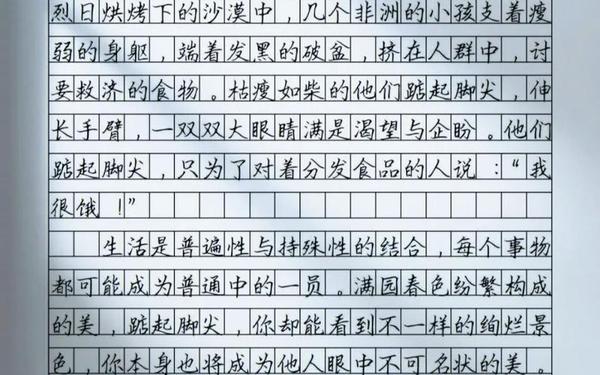 烈日烘烤下的沙漠中，几个非洲的小孩支着瘦
弱的身躯，端着发黑的破盆，挤在人群中，讨
要救济的食物。枯瘦如柴的他们踮起脚尖，伸
长手臂，一双双大眼睛满是渴望与企盼。他们
踮起脚尖，只为了对着分发食品的人说：“我
很饿！”
生活是普遍性与特殊性的结合，每个事物
都可能成为普通中的一员。满园春色纷繁构成
的美，踮起脚尖，你却能看到不一样的绚烂景
色，你本身也将成为他人眼中不可名状的美。